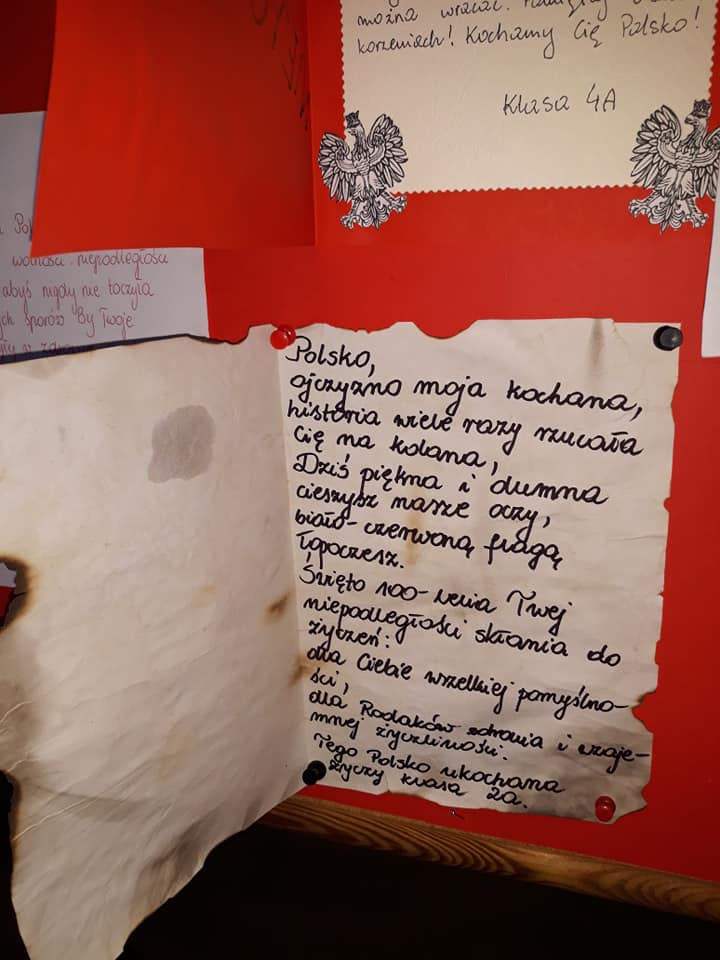 można wracać. Pamiętaj o
korzeniach! Kochamy Cię Polsko!
Klasa 4A
wolności i niepodległości
abyś nigdy nie toczyła
sporów By Twoje
Polsko,
ojczyzno moja kochana,
historia wiele razy rzucała
Cię na kolana,
Dziś piękna i dumna
cieszysz nasze oczy,
biało-czerwoną flagą
łopoczesz.
Święto 100-lecia Twej
niepodległości skłania do
życzeń:
dla Ciebie wszelkiej pomyślno-
ści,
dla Rodaków zdrowia i wzaje-
mnej życzliwości.
Tego Polsko ukochana
życzy klasa 2a.